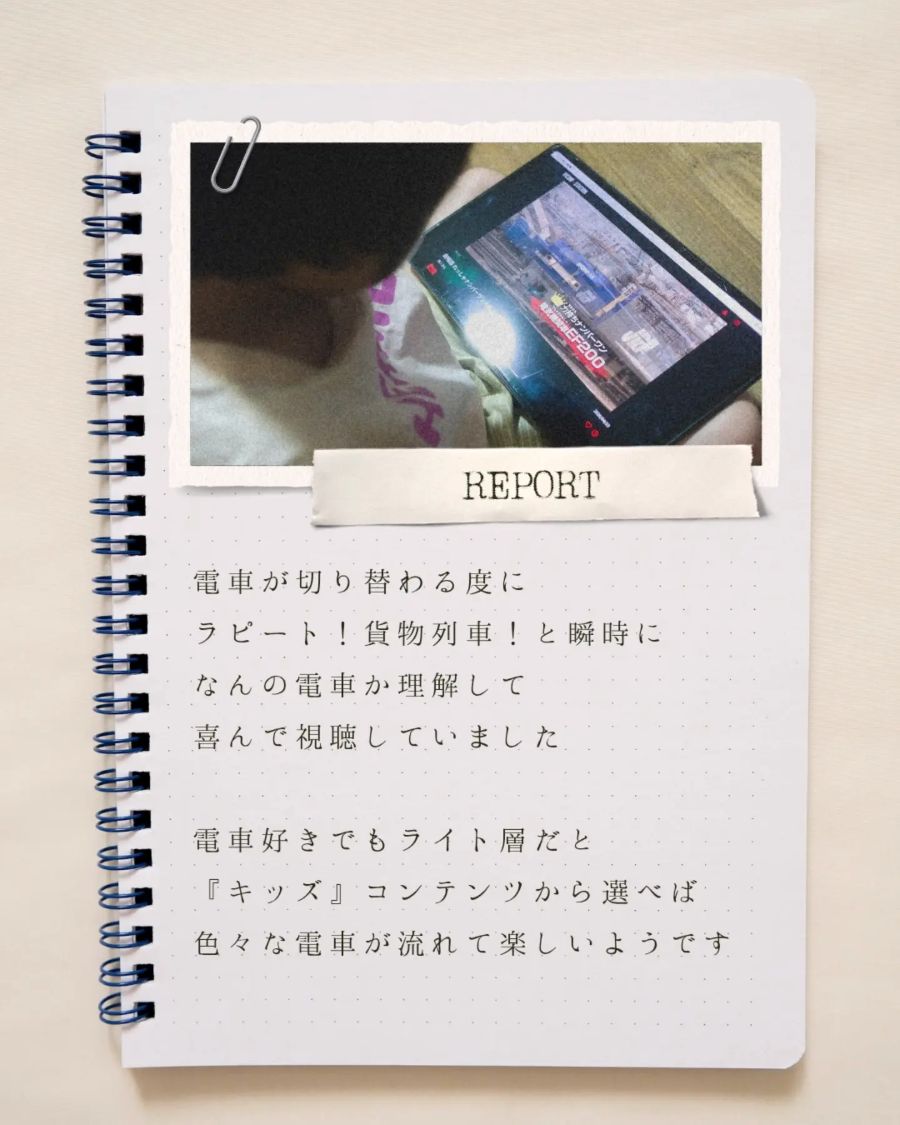 力持ちナンバーワン
EF200
REPORT
電車が切り替わる度に
ラピート！貨物列車！と瞬時に
なんの電車か理解して
喜んで視聴していました
電車好きでもライト層だと
『キッズ』コンテンツから選べば
色々な電車が流れて楽しいようです